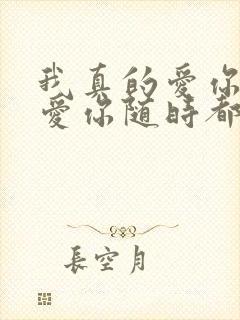 我真的愛你
愛你随時都
長空月